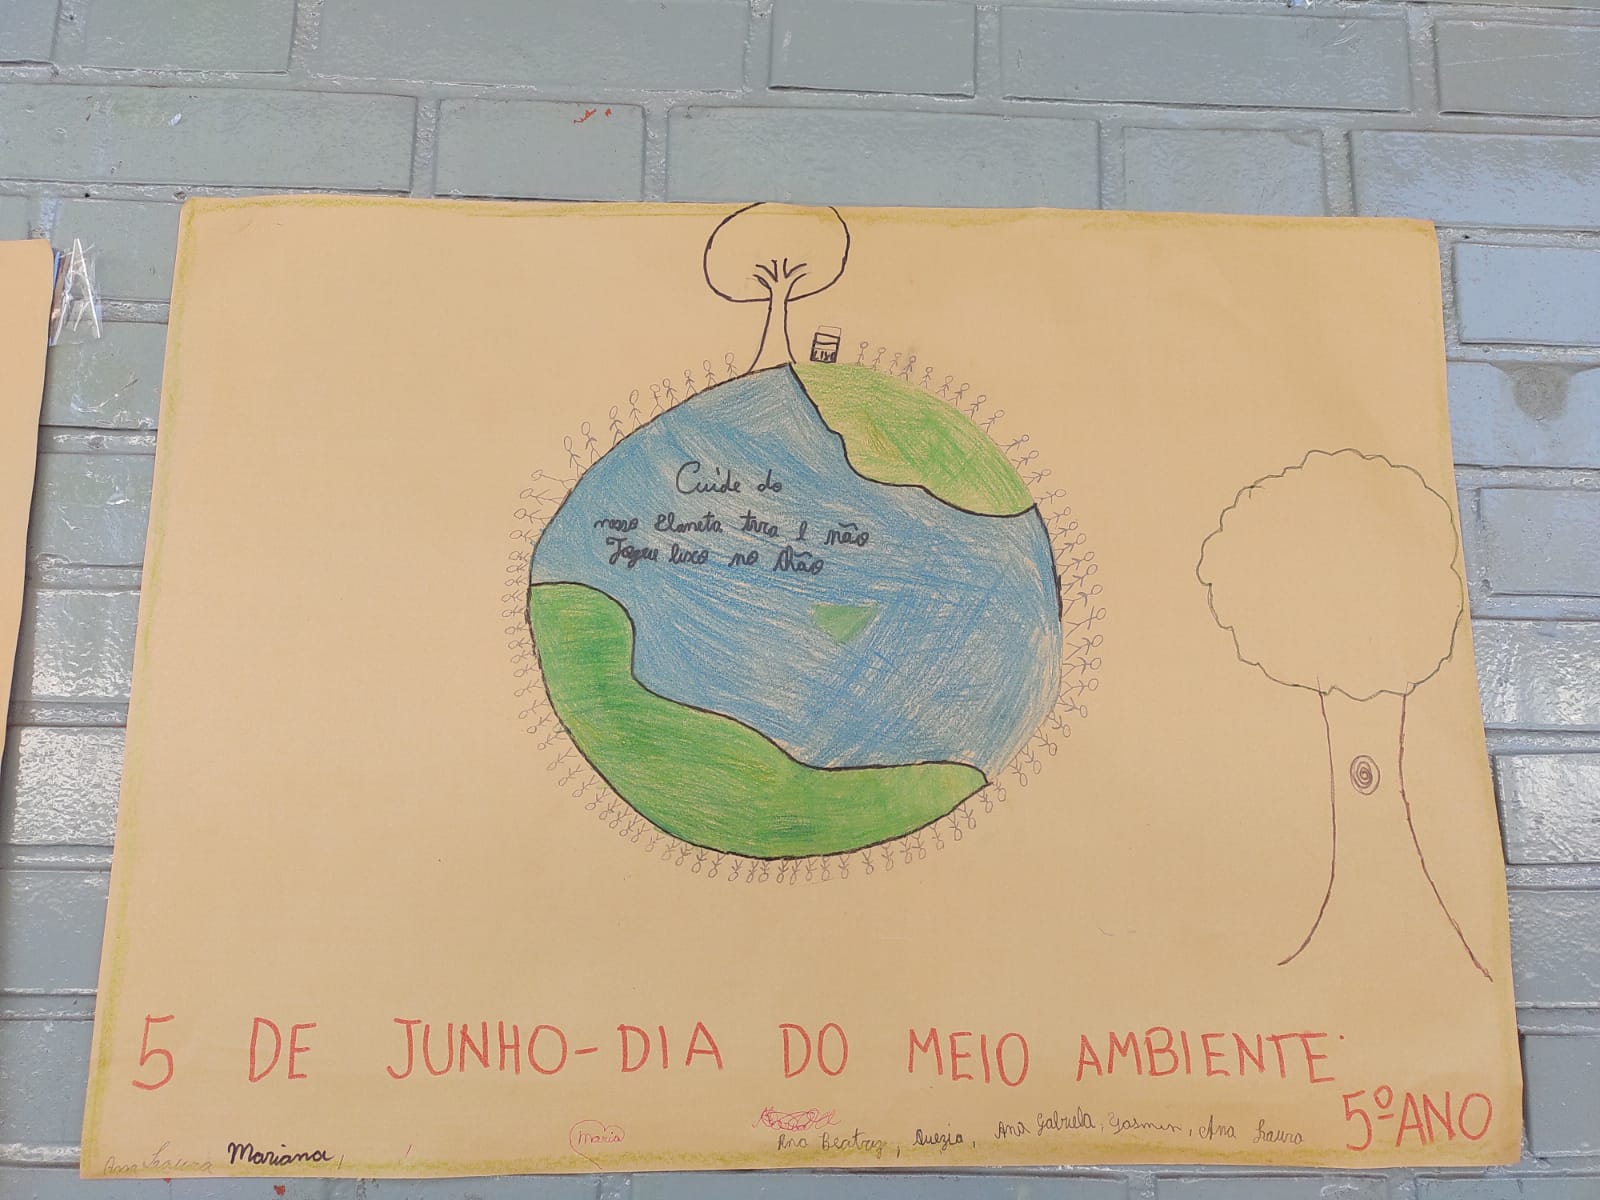 LIXO
Cuide do
nosso Planeta terra e não
Jogue lixo no Chão
5 DE JUNHO-DIA DO MEIO AMBIENTE.
5º ANO
Ana Laura Mariana, Maria Ana Beatriz, Quezia, Ana Gabriela, Yasmin, Ana Laura